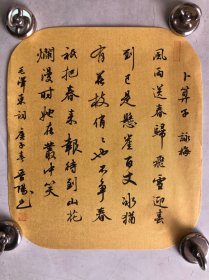 卜算子 詠梅
風雨送春歸飛雪迎春
到已是懸崖百丈冰猶
有花枝俏〻也不爭春
祇把春來報待到山花
爛漫時她在叢中笑
毛澤東詞庚子